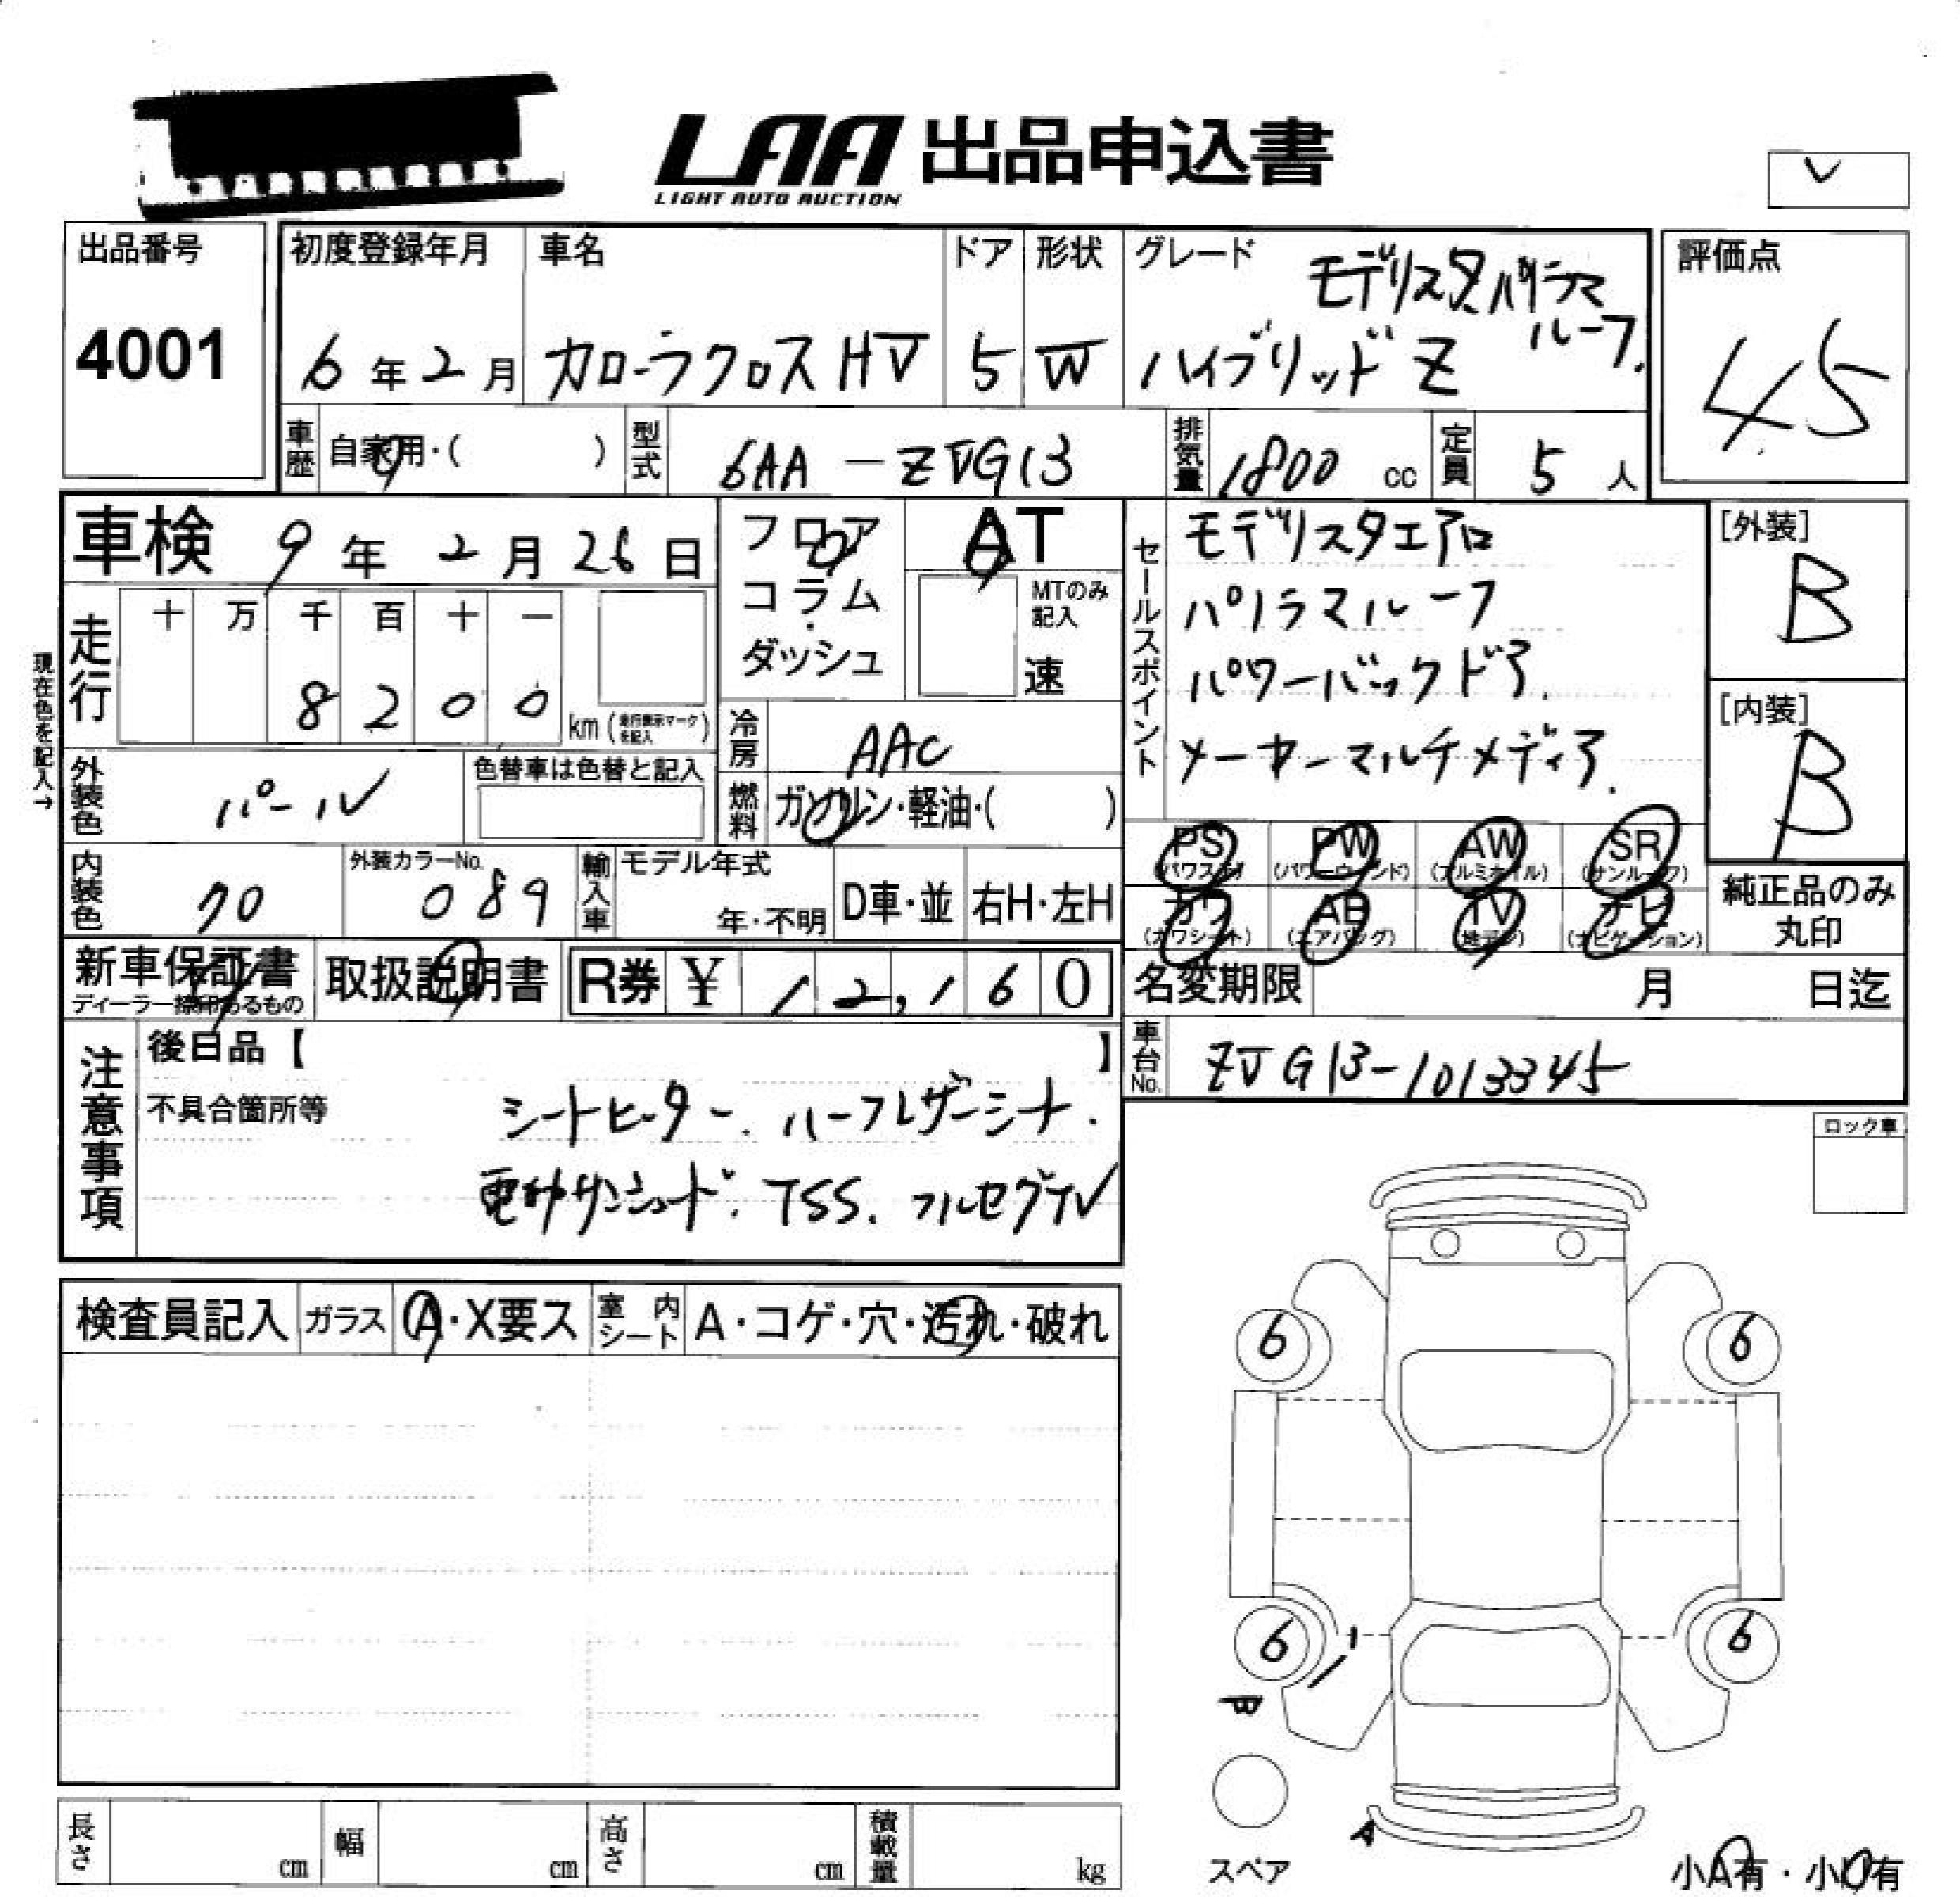 LAA 出品申込書
LIGHT AUTO AUCTION
レ
出品番号
4001
初度登録年月
6年2月
車名
カローラクロスHV
ドア
5
形状
W
グレード
モデリスタパノラマ
ルーフ.
ハイブリッドZ
評価点
4.5
車歴
自家用・( )
型式
6AA-ZVG13
排気量
1800 cc
定員
5 人
車検 9年2月26日
フロア
コラム
・
ダッシュ
AT
MTのみ
記入
速
セールスポイント
モデリスタエアロ
パノラマルーフ
パワーバックドア.
メーカーマルチメディア.
[外装]
B
[内装]
B
現在色を記入→
走行
十 万 千 百 十 一
8 2 0 0
km (走行表示マークを記入)
冷房
AAC
外装色
パール
色替車は色替と記入
燃料
ガソリン・軽油・( )
PS
(パワステ)
PW
(パワーウインド)
AW
(アルミホイル)
SR
(サンルーフ)
カワ
(カワシート)
AB
(エアバッグ)
TV
(地デジ)
ナビ
(ナビゲーション)
純正品のみ
丸印
内装色
クロ
外装カラーNo.
089
輸入車
モデル年式
年・不明
D車・並
右H・左H
新車保証書
ディーラー捺印あるもの
取扱説明書
R券 ¥ 12,160
名変期限 月 日迄
車台No.
ZVG13-1013345
注意事項
後日品【 】
不具合箇所等
シートヒーター. ハーフレザーシート.
電動サンシェード. TSS. フルセグTV
ロック車
検査員記入
ガラス
A・X要ス
室内シート
A・コゲ・穴・汚れ・破れ
6
6
6
6
W
A
スペア
小A有・小U有
長さ cm
幅 cm
高さ cm
積載量 kg